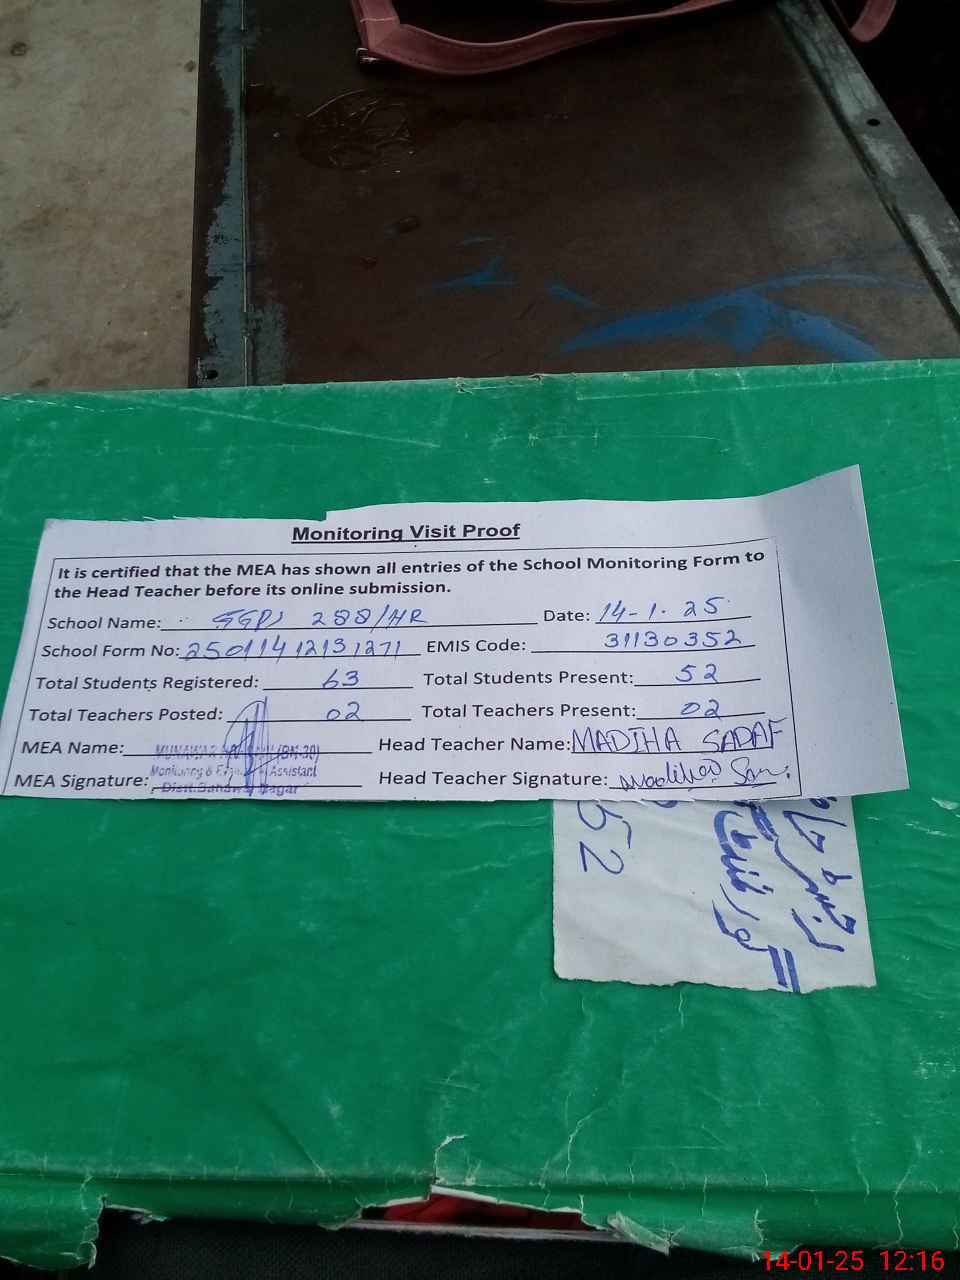 Monitoring Visit Proof
It is certified that the MEA has shown all entries of the School Monitoring Form to
the Head Teacher before its online submission.
School Name: GGPS 288/HR Date: 14-1-25
School Form No: 25011412131271 EMIS Code: 31130352
Total Students Registered: 63 Total Students Present: 52
Total Teachers Posted: 02 Total Teachers Present: 02
MEA Name: MUNAWAR (BN-20) Head Teacher Name: MADIHA SADAF
Monitoring & Assistant
MEA Signature: Head Teacher Signature:
Distt. Bahawal Nagar
52
14-01-25 12:16